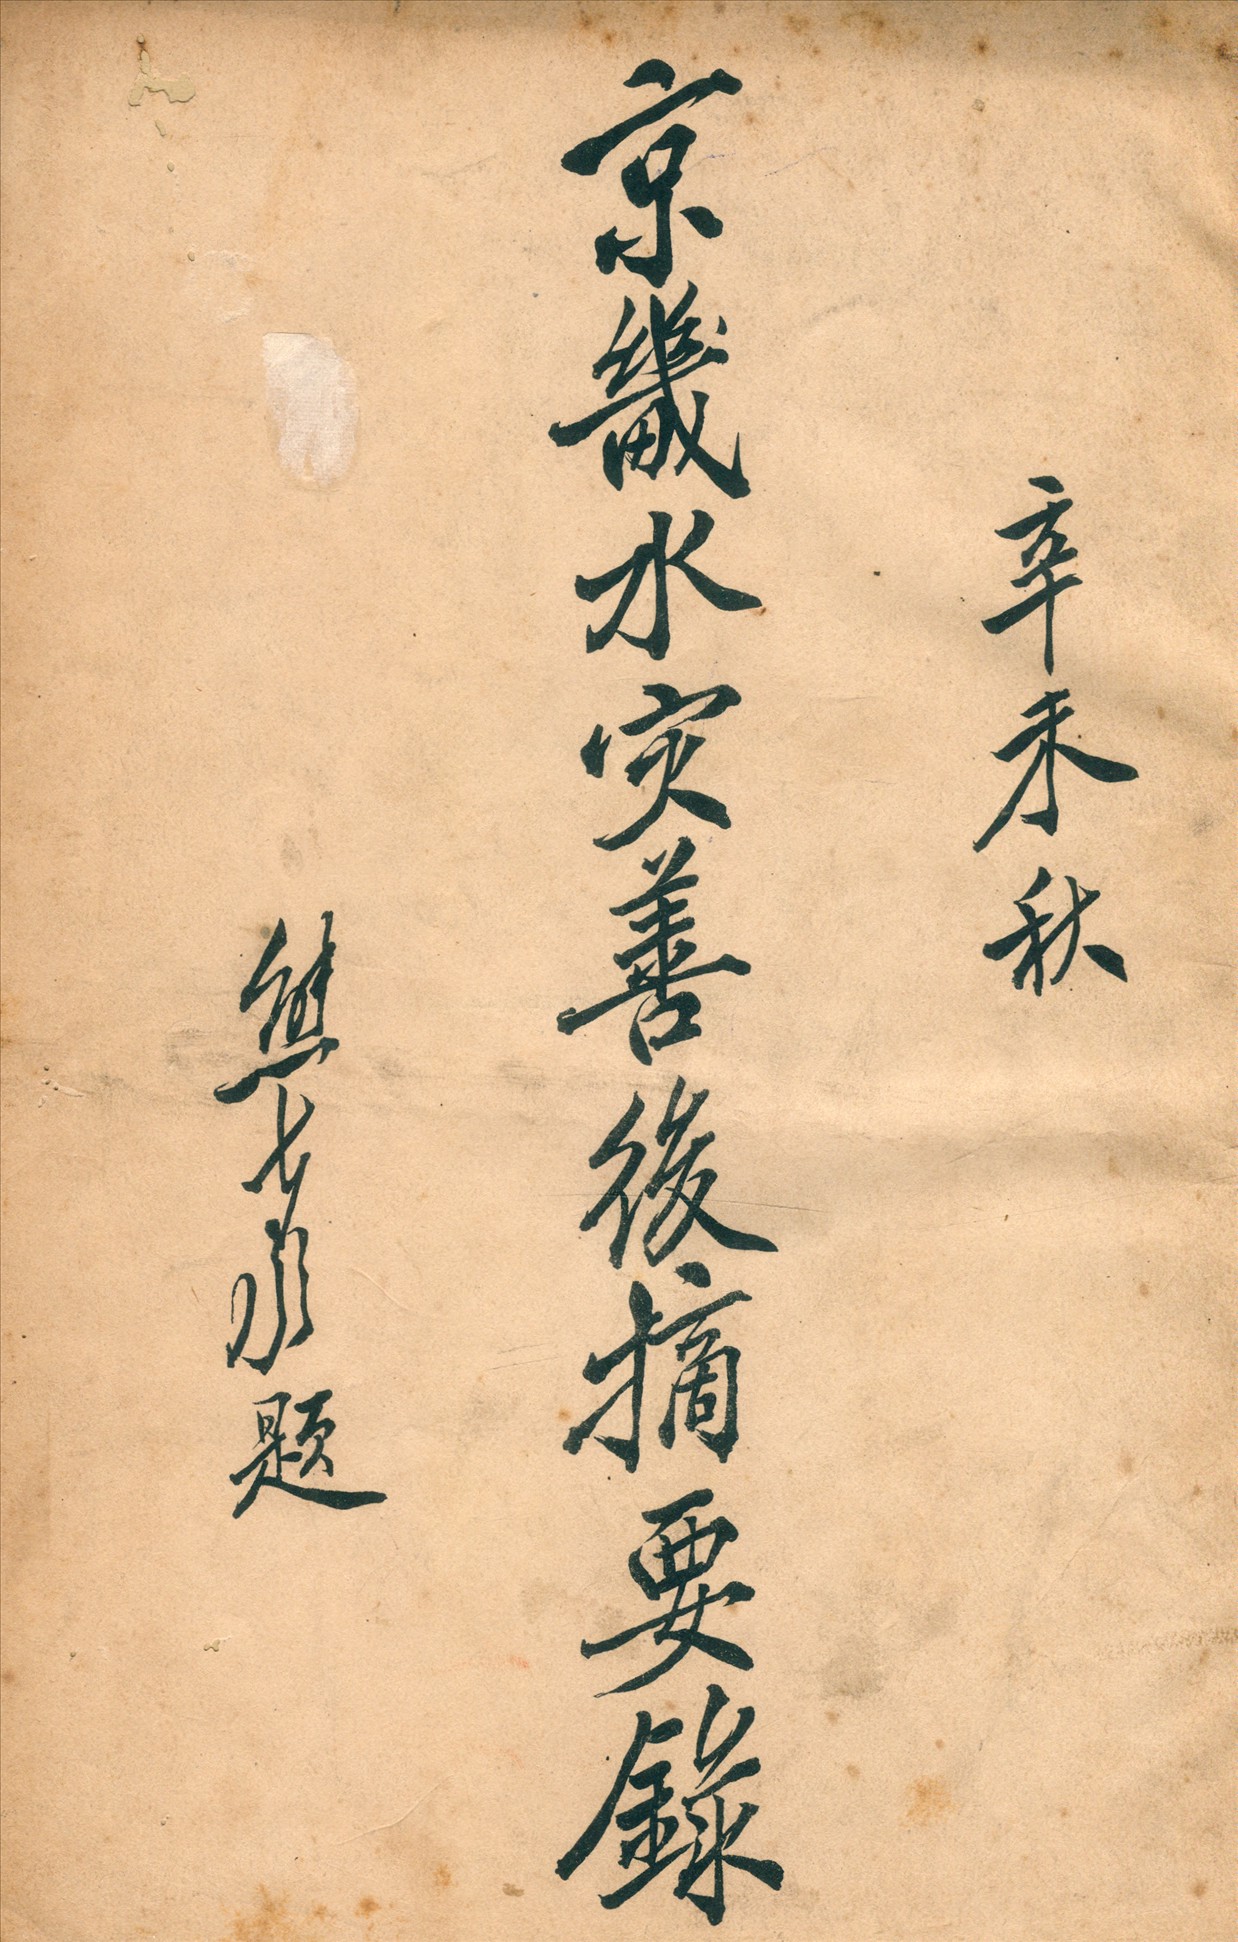 辛未秋
京畿水灾善後摘要錄
熊希齡題